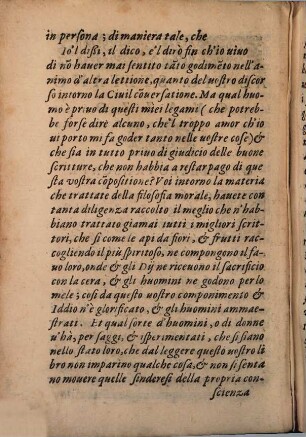 in persona; di maniera tale, che
Io'l dißi, il dico, e'l dirò fin ch'io uiuo
di nõ hauer mai sentito tãto godimẽto nell'a-
nimo d'altra lettione, quanto del uostro discor
so intorno la Ciuil conuersatione. Ma qual huo
mo è priuo di questi miei legami (che potreb-
be forse dire alcuno, che'l troppo amor ch'io
ui porto mi fa goder tanto nelle uostre cose) &
che sia in tutto priuo di giudicio delle buone
scritture, che non habbia a restar pago di que
sta vostra cõpositione? Voi intorno la materia
che trattate della filosofia morale, hauete con
tanta diligenza raccolto il meglio che n'hab-
biano trattato giamai tutti i migliori scritto-
ri, che si come le api da fiori, & frutti racco-
gliendo il più spiritoso, ne compongono il fa-
uo loro, onde & gli Dij ne riceuono il sacrificio
con la cera, & gli huomini ne godono per lo
mele; così da questo uostro componimento &
Iddio n'è glorificato, & gli huomini ammae-
strati. Et qual sorte d'huomini, o di donne
u'hà, per saggi, & isperimentati, che si siano
nello stato loro, che dal leggere questo uostro li
bro non imparino qualche cosa, & non si senta
no mouere quelle sinderesi della propria con-
scienza